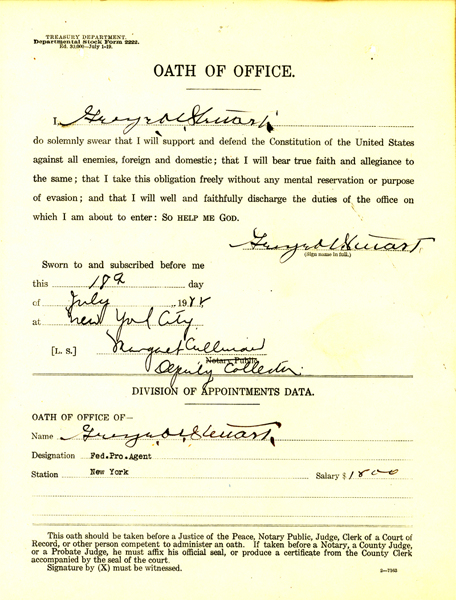 TREASURY DEPARTMENT.
Departmental Stock Form 2222.
Ed. 31,000—July 1-19.
OATH OF OFFICE.
I, George W. Stewart,
do solemnly swear that I will support and defend the Constitution of the United States
against all enemies, foreign and domestic; that I will bear true faith and allegiance to
the same; that I take this obligation freely without any mental reservation or purpose
of evasion; and that I will well and faithfully discharge the duties of the office on
which I am about to enter: So HELP ME GOD.
George Stewart
(Sign name in full.)
Sworn to and subscribed before me
this day
of July 19
at New York City
[L. S.] Margaret Cullman
Notary Public.
Deputy Collector.
DIVISION OF APPOINTMENTS DATA.
OATH OF OFFICE OF—
Name George Stewart
Designation Fed.Pro.Agent
Station New York Salary $ 1800
This oath should be taken before a Justice of the Peace, Notary Public, Judge, Clerk of a Court of
Record, or other person competent to administer an oath. If taken before a Notary, a County Judge,
or a Probate Judge, he must affix his official seal, or produce a certificate from the County Clerk
accompanied by the seal of the court.
Signature by (X) must be witnessed.
2—7363